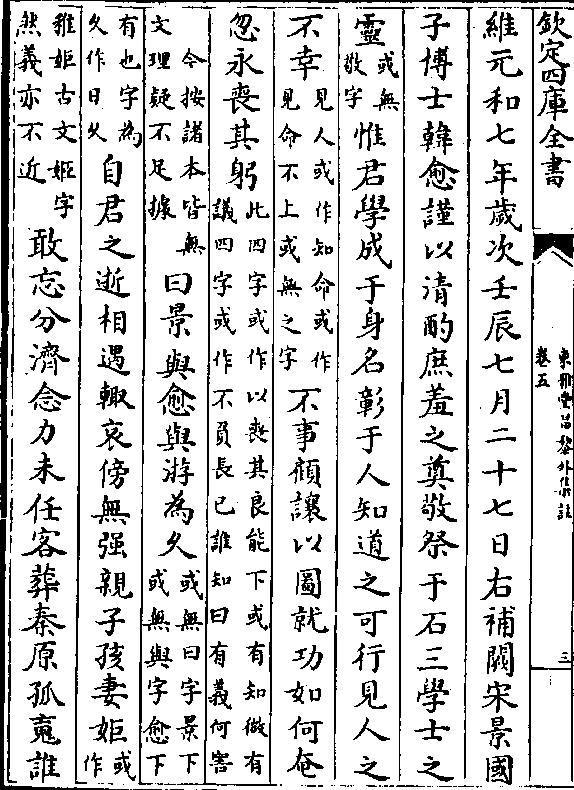 欽定四庫全書
東雅堂昌黎外集註
卷五
三
維元和七年歲次壬辰七月二十七日右補闕宋景國
子博士韓愈謹以清酌庶羞之奠敬祭于石三學士之
靈或無敬字惟君學成于身名彰于人知道之可行見人之
不幸見人或作知命或作見命不上或無之字不事顧讓以圖就功如何奄
忽永喪其躬此四字或作以喪其良能下或有知微有議四字或作不負長已誰知曰有義何害
今按諸本皆無文理疑不足據曰景與愈與游為久或無曰字景下或無與字愈下
有也字為久作日久自君之逝相遇輙哀傍無强親子孩妻姖或作
稚姖古文姬字然義亦不近敢忘分濟念力未任客葬秦原孤䰟誰